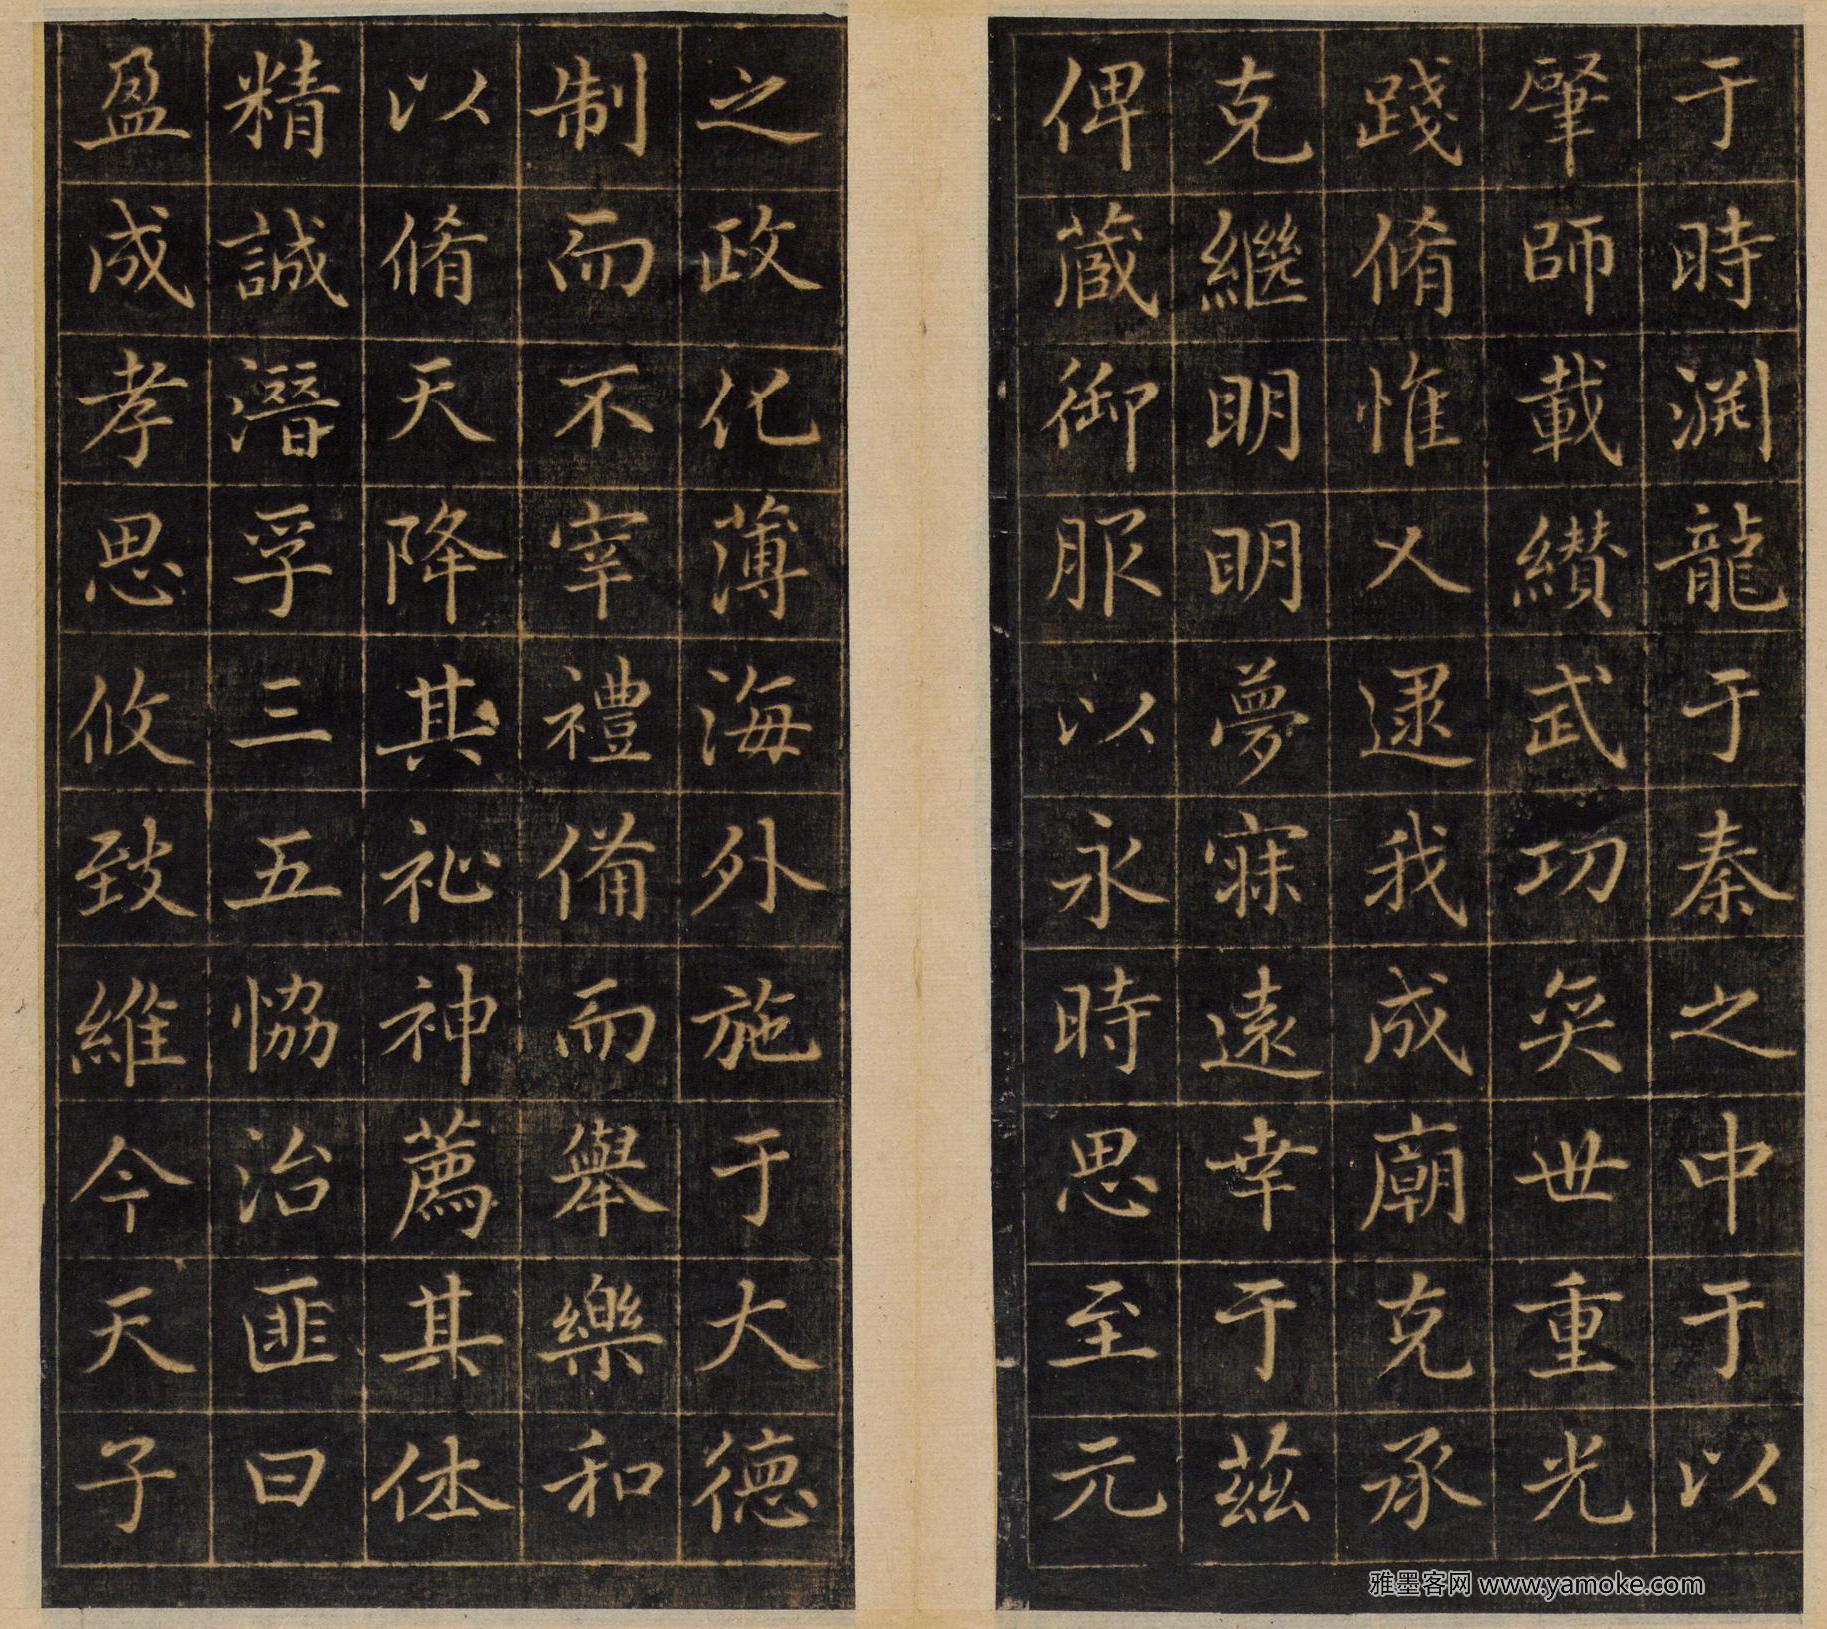 于時渊龍于秦之中于以
肇師載纘武功奕世重光
踐脩惟乂逮我成廟克承
克繼明明夢寐遠幸于茲
俾蕆御服以永時思至元
之政化薄海外施于大德
制而不宰禮備而舉樂和
以脩天降其祉神薦其休
精誠潛孚三五恊治匪曰
盈成孝思攸致維今天子
雅墨客网 www.yamoke.com